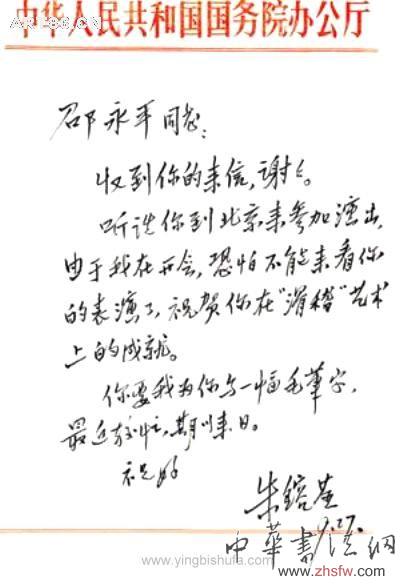 中华人民共和国国务院办公厅
邵永平同志：
收到你的来信，谢々。
听说你到北京来参加演出，
由于我在开会，恐怕不能来看你
的表演了，祝贺你在“滑稽”艺术
上的成就。
你要我为你写一幅毛筆字，
最近较忙，期以来日。
祝好
朱鎔基
9.27.
中華書法網
www.yingbishufa.com
www.zhsfw.com